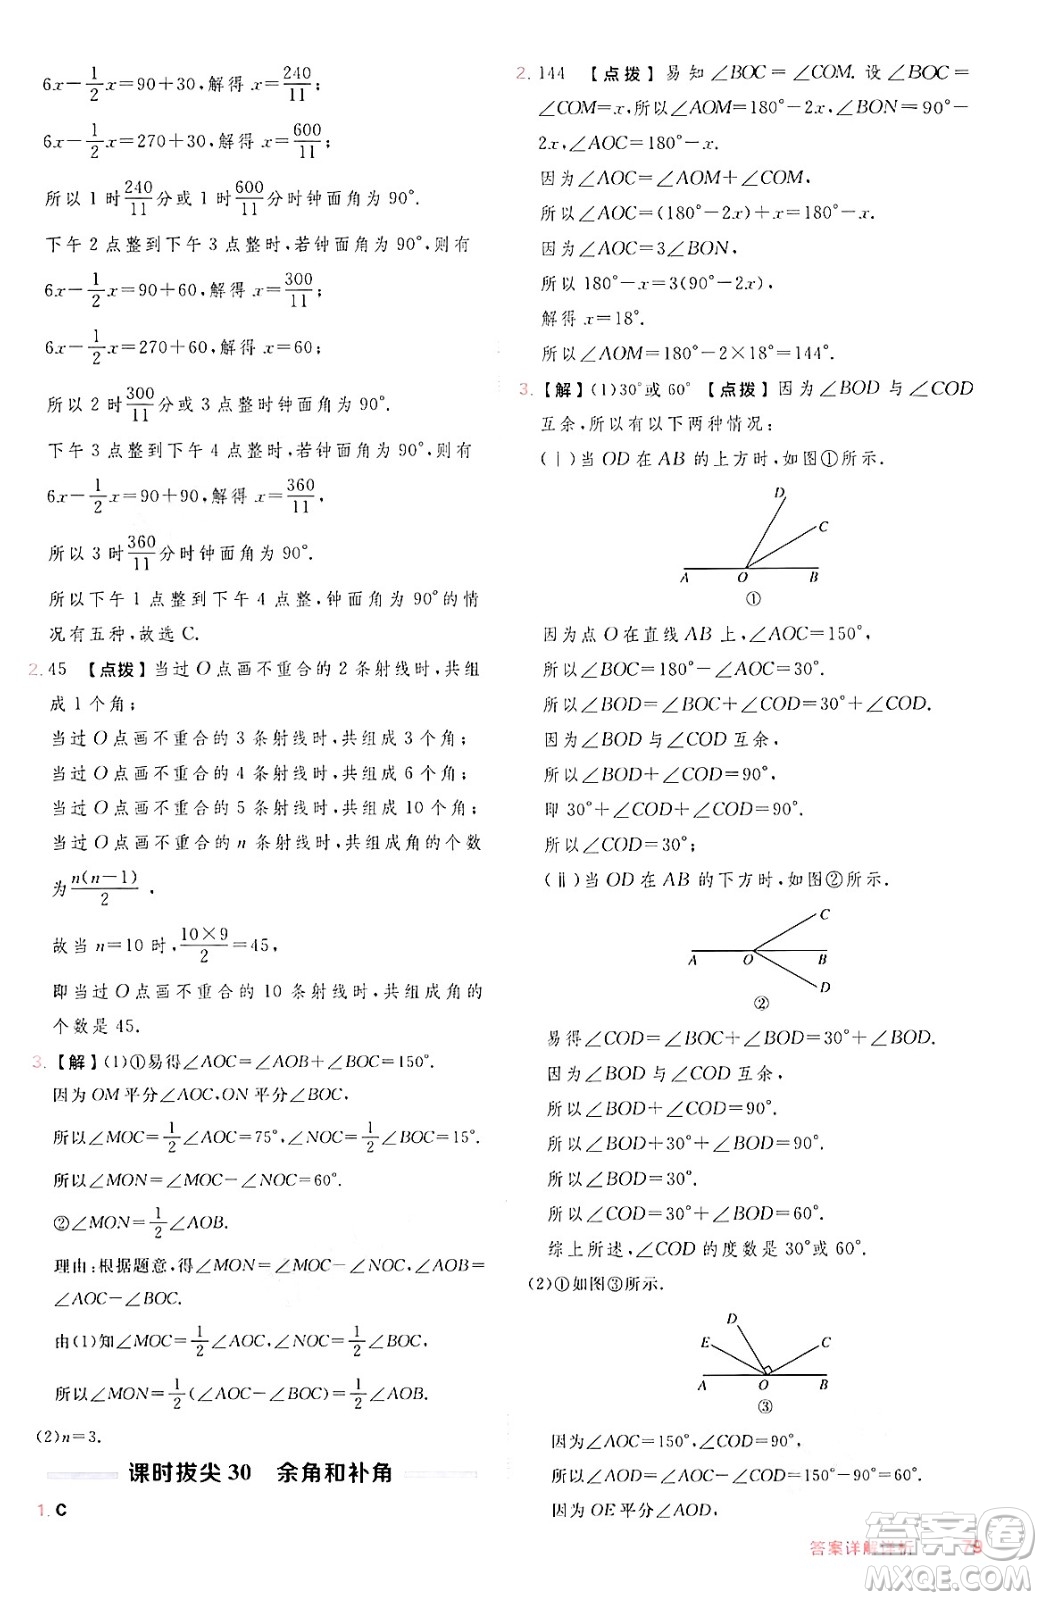 6x−1/2x=90+30，解得 x=240/11；
6x−1/2x=270+30，解得 x=600/11；
所以 1 时240/11分或 1 时600/11分时钟面角为 90°.
下午 2 点整到下午 3 点整时，若钟面角为 90°，则有
6x−1/2x=90+60，解得 x=300/11；
6x−1/2x=270+60，解得 x=60；
所以 2 时300/11分或 3 点整时钟面角为 90°.
下午 3 点整到下午 4 点整时，若钟面角为 90°，则有
6x−1/2x=90+90，解得 x=360/11，
所以 3 时360/11分时钟面角为 90°.
所以下午 1 点整到下午 4 点整，钟面角为 90°的情
况有五种，故选 C.
2. 45 【点拨】当过 O 点画不重合的 2 条射线时，共组
成 1 个角；
当过 O 点画不重合的 3 条射线时，共组成 3 个角；
当过 O 点画不重合的 4 条射线时，共组成 6 个角；
当过 O 点画不重合的 5 条射线时，共组成 10 个角；
当过 O 点画不重合的 n 条射线时，共组成角的个数
为n(n−1)/2 ，
故当 n=10 时，10×9/2=45，
即当过 O 点画不重合的 10 条射线时，共组成角的
个数是 45.
3. 【解】(1)①易得∠AOC=∠AOB+∠BOC=150°.
因为 OM 平分∠AOC，ON 平分∠BOC，
所以∠MOC=1/2∠AOC=75°，∠NOC=1/2∠BOC=15°.
所以∠MON=∠MOC−∠NOC=60°.
②∠MON=1/2∠AOB.
理由：根据题意，得∠MON=∠MOC−∠NOC，∠AOB=
∠AOC−∠BOC.
由(1)知∠MOC=1/2∠AOC，∠NOC=1/2∠BOC，
所以∠MON=1/2(∠AOC−∠BOC)=1/2∠AOB.
(2)n=3.
课时拔尖 30 余角和补角
1. C
2. 144 【点拨】易知∠BOC=∠COM. 设∠BOC=
∠COM=x，所以∠AOM=180°−2x，∠BON=90°−
2x，∠AOC=180°−x.
因为∠AOC=∠AOM+∠COM，
所以∠AOC=(180°−2x)+x=180°−x.
因为∠AOC=3∠BON，
所以 180°−x=3(90°−2x)，
解得 x=18°.
所以∠AOM=180°−2×18°=144°.
3. 【解】(1)30°或 60° 【点拨】因为∠BOD 与∠COD
互余，所以有以下两种情况：
(ⅰ)当 OD 在 AB 的上方时，如图①所示.
D
C
A O B
①
因为点 O 在直线 AB 上，∠AOC=150°，
所以∠BOC=180°−150°=30°，
所以∠BOD=∠BOC+∠COD=30°+∠COD.
因为∠BOD 与∠COD 互余，
所以∠BOD+∠COD=90°，
即 30°+∠COD+∠COD=90°，
所以∠COD=30°.
(ⅱ)当 OD 在 AB 的下方时，如图②所示.
C
A O B
D
②
易得∠COD=∠BOC+∠BOD=30°+∠BOD.
因为∠BOD 与∠COD 互余，
所以∠BOD+∠COD=90°，
所以∠BOD+30°+∠BOD=90°.
所以∠BOD=30°.
所以∠COD=30°+∠BOD=60°.
综上所述，∠COD 的度数是 30°或 60°.
(2)①如图③所示.
D
E C
A O B
③
因为∠AOC=150°，∠COD=90°，
所以∠AOD=150°−90°=60°.
因为 OE 平分∠AOD，
答案详解详析 79
答案圈
MXQE.COM